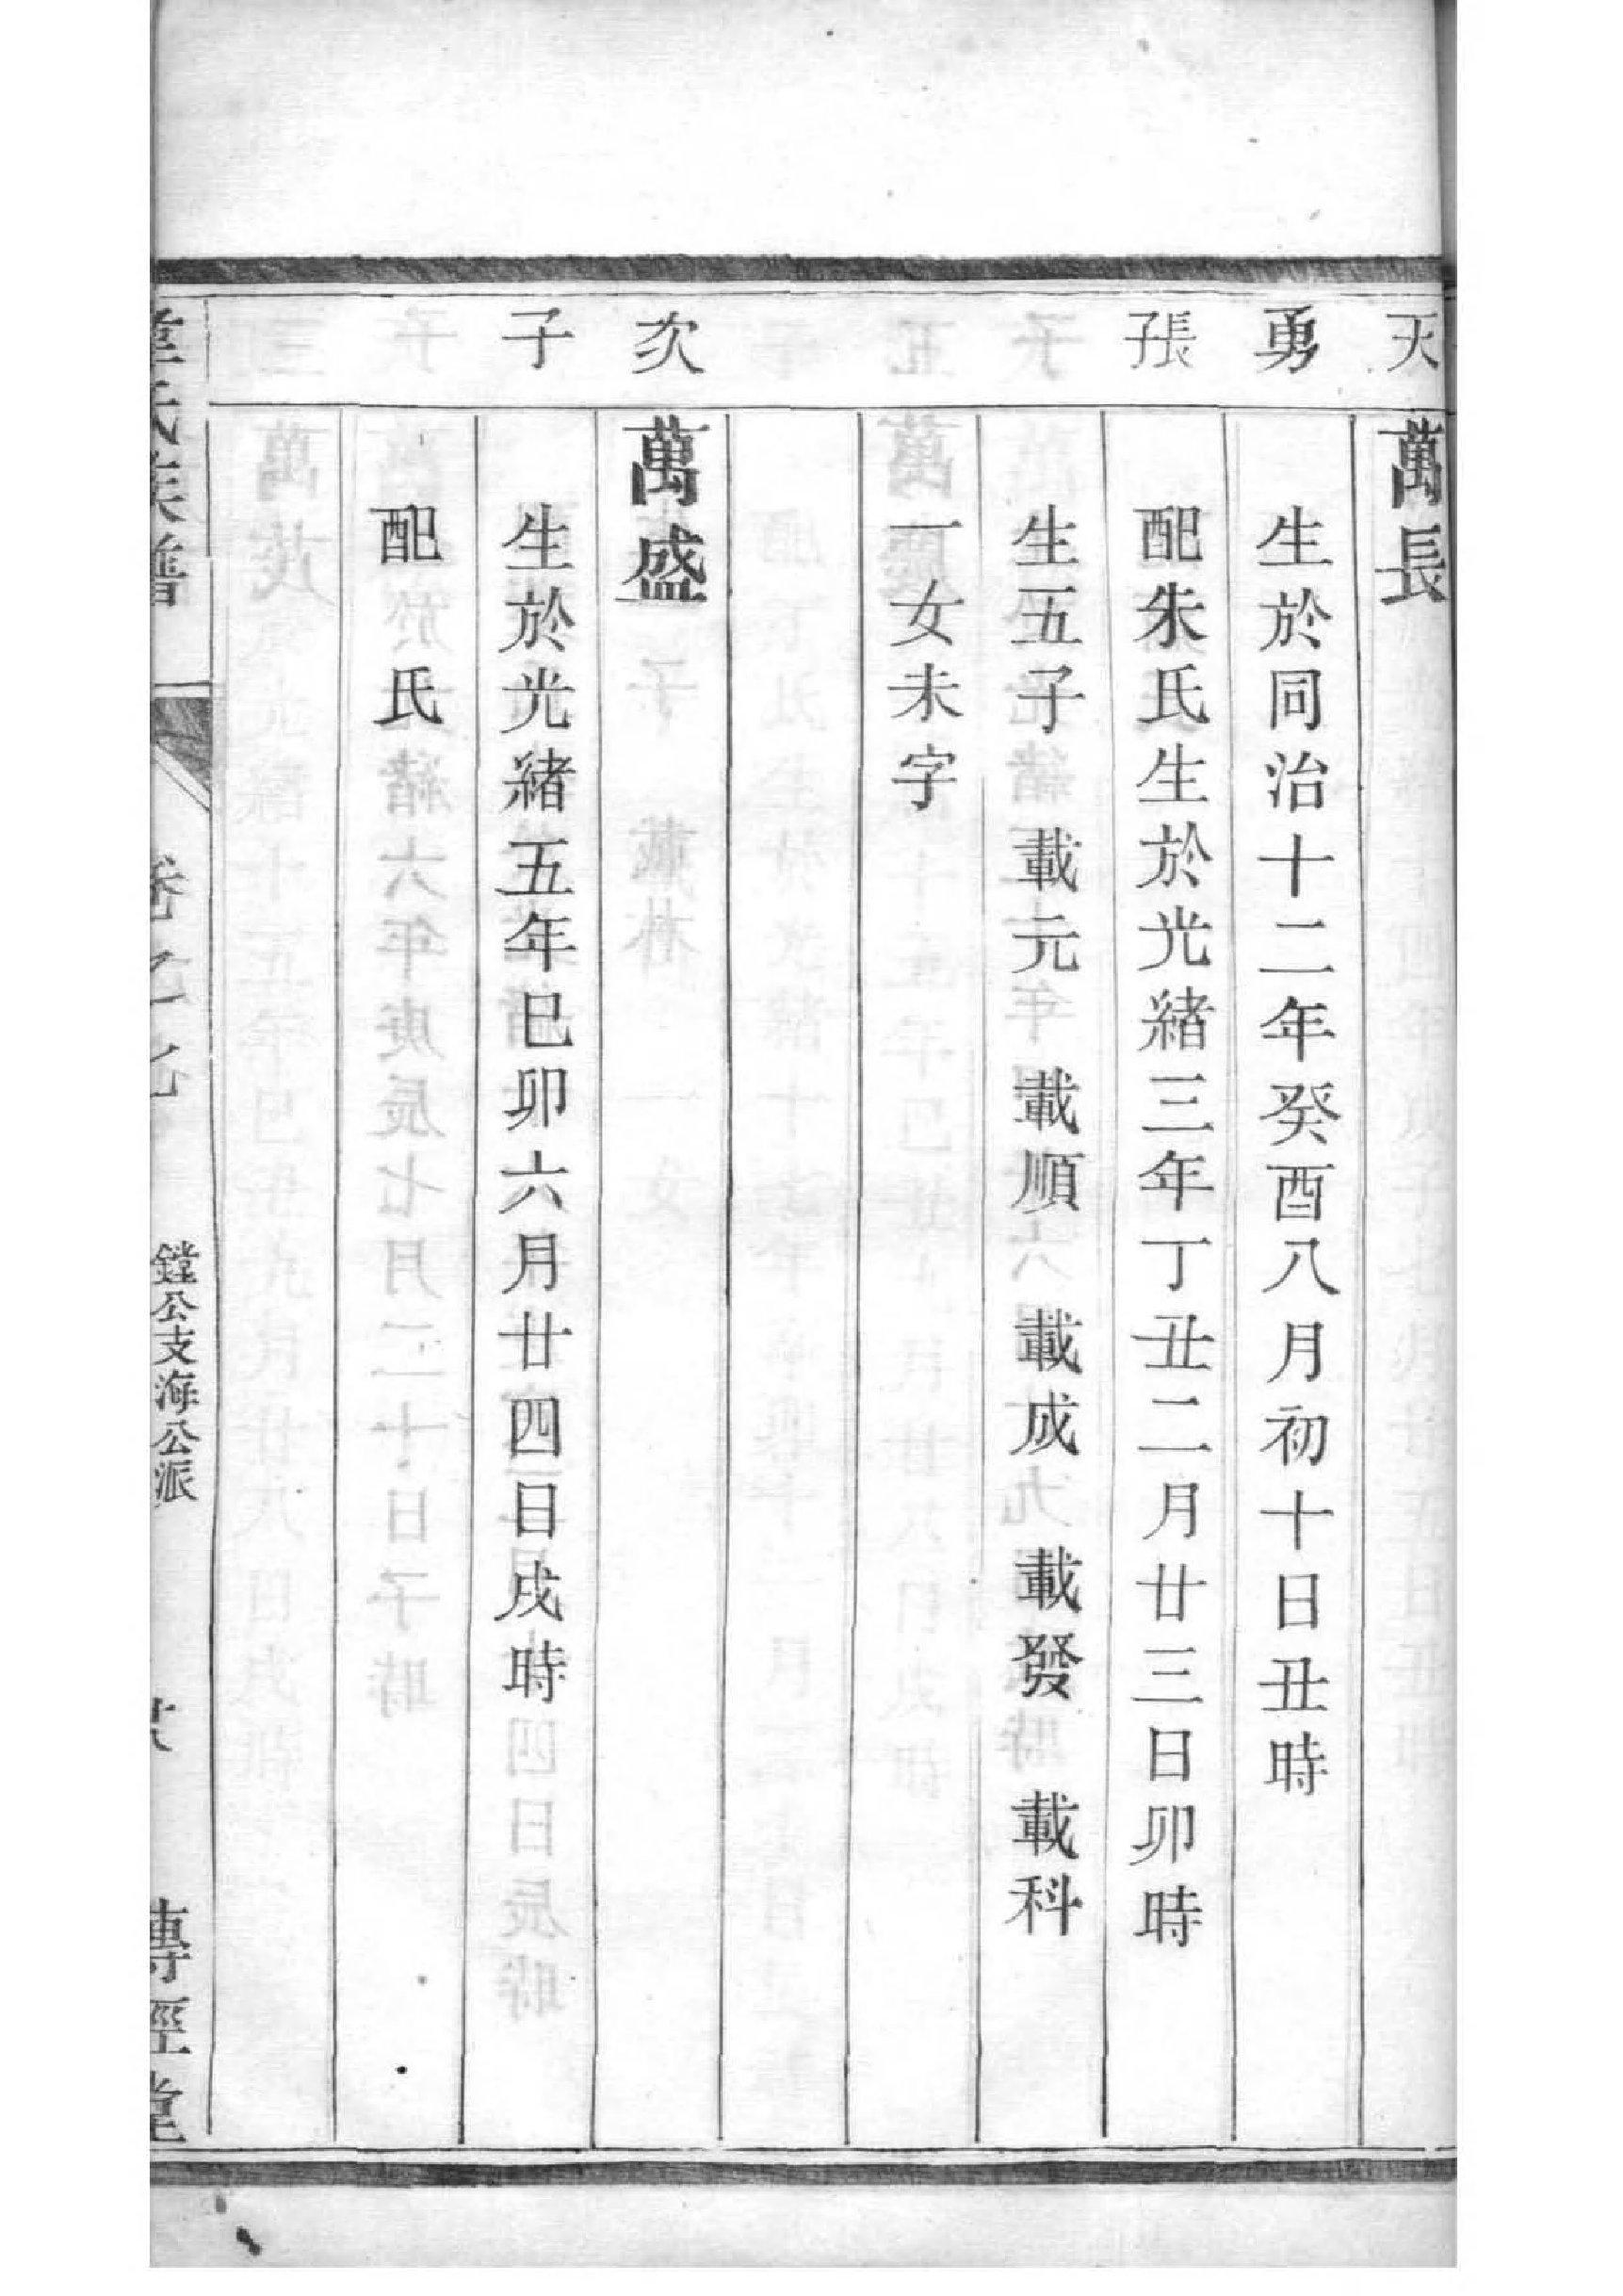 天 萬長
勇 生於同治十二年癸酉八月初十日丑時
長子 配朱氏生於光緒三年丁丑二月廿三日卯時
生五子 載元 載順 載成 載發 載科
一女未字
次 萬盛
子 生於光緒五年巳卯六月廿四日戌時
配 氏
氏族譜 卷之 鏜公支海公派 傳經堂